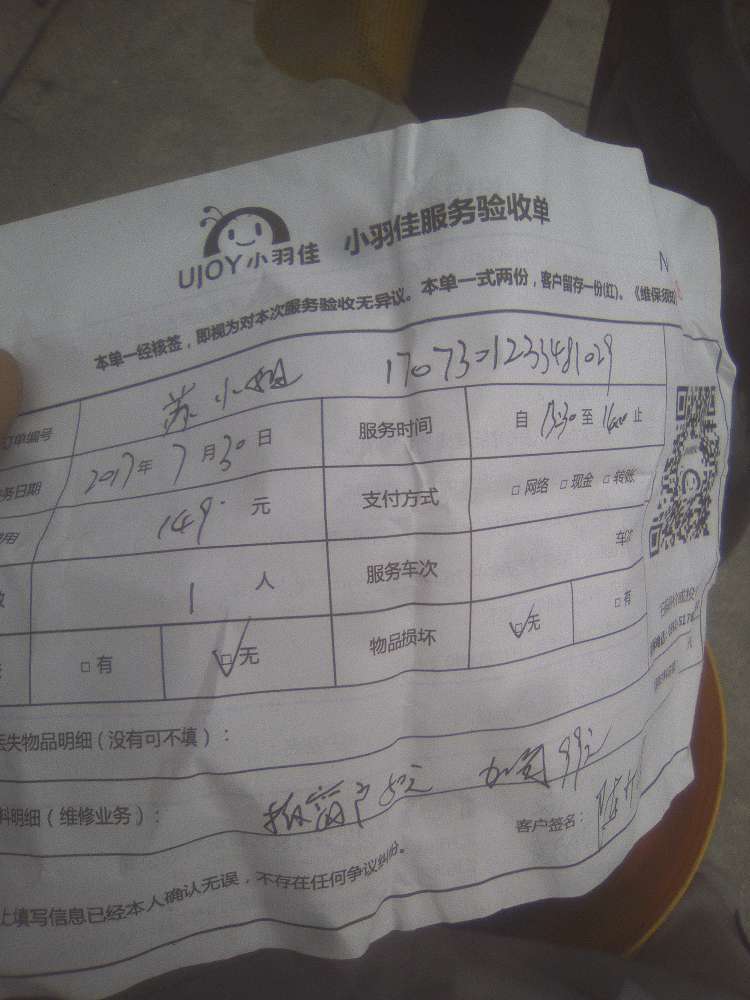 UJOY小羽佳 小羽佳服务验收单
N
本单一经核签，即视为对本次服务验收无异议。本单一式两份，客户留存一份(红)。《维保须知
订单编号 苏小姐 1707301233481029
务日期 2017年7月30日 服务时间 自 13:30 至 止
用 149 元 支付方式 □ 网络 □ 现金 □ 转账
1 人 服务车次 车次
□ 有 □ 无 物品损坏 □ 无 □ 有
丢失物品明细（没有可不填）：
料明细（维修业务）： 50元 加 99元
客户签名：
上填写信息已经本人确认无误，不存在任何争议纠纷。